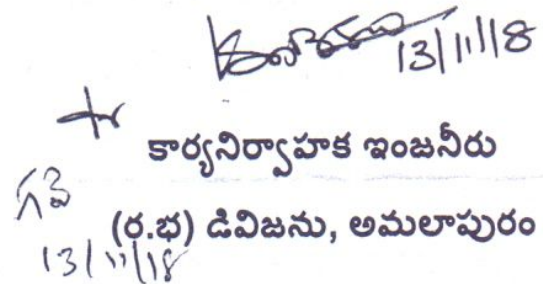 13/11/18
కార్యనిర్వాహక ఇంజనీరు
(ర.భ) డివిజను, అమలాపురం
13/11/18